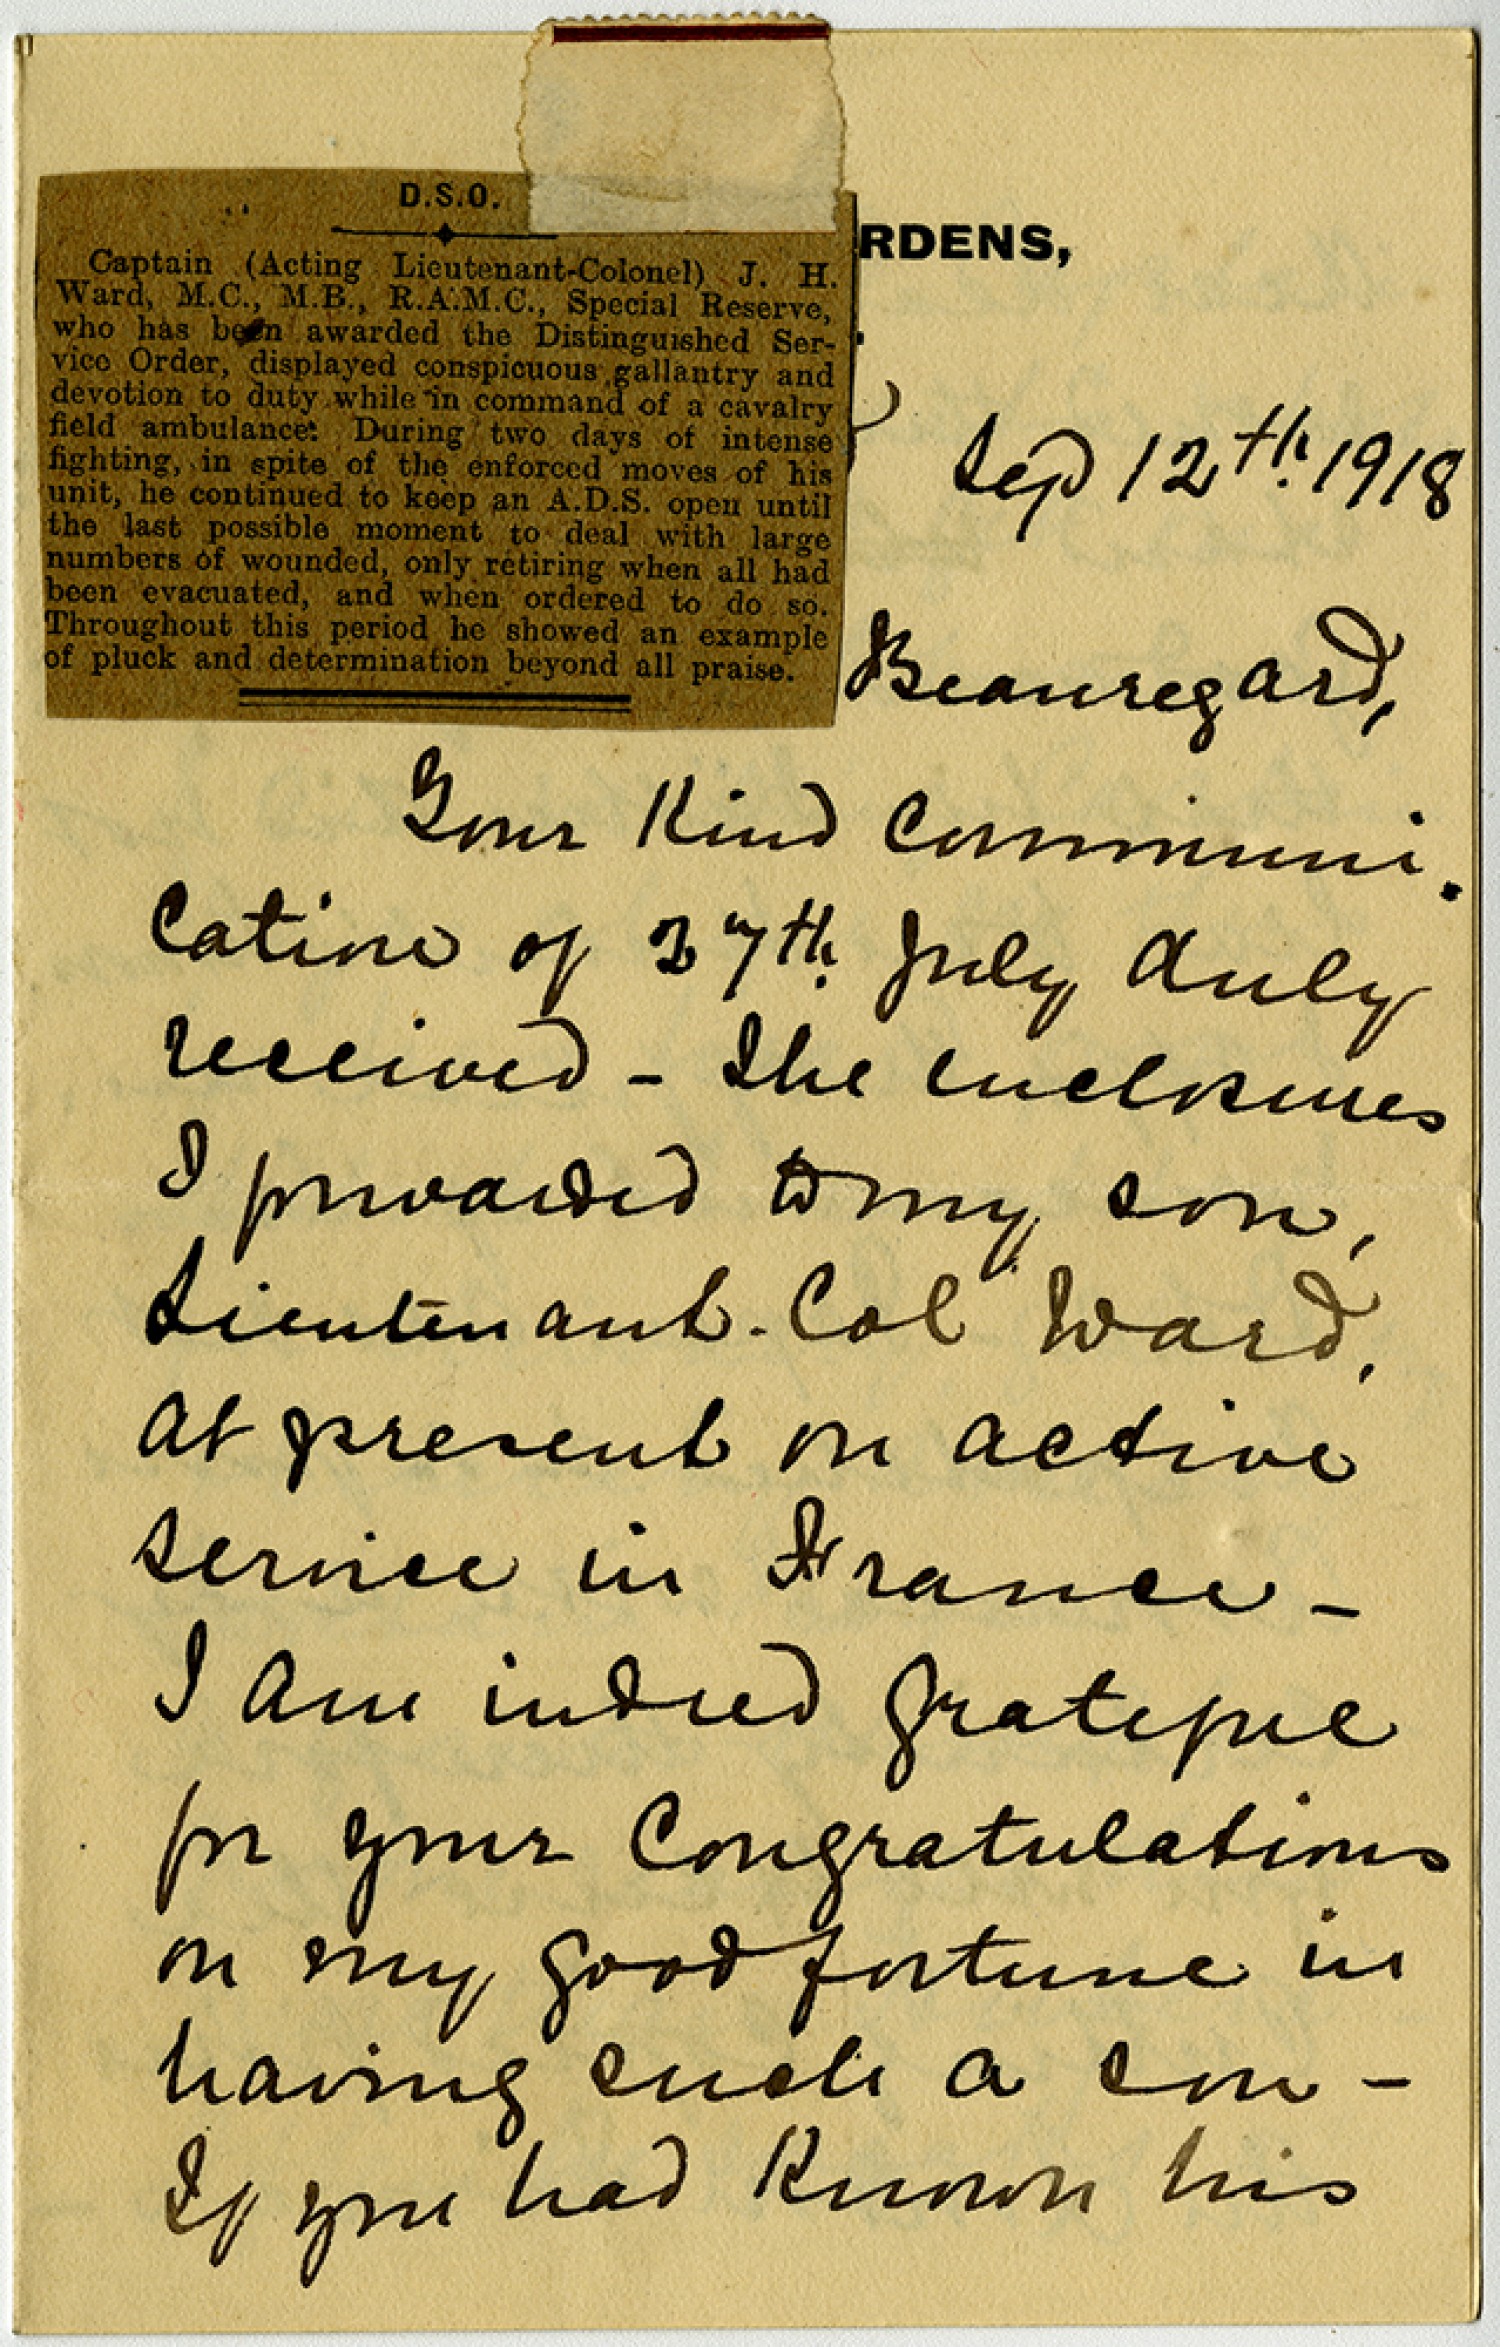 D.S.O.
Captain (Acting Lieutenant-Colonel) J. H.
Ward, M.C., M.B., R.A.M.C., Special Reserve,
who has been awarded the Distinguished Ser-
vice Order, displayed conspicuous gallantry and
devotion to duty while in command of a cavalry
field ambulance. During two days of intense
fighting, in spite of the enforced moves of his
unit, he continued to keep an A.D.S. open until
the last possible moment to deal with large
numbers of wounded, only retiring when all had
been evacuated, and when ordered to do so.
Throughout this period he showed an example
of pluck and determination beyond all praise.
RDENS,
Sep 12th. 1918
Beauregard,
Your Kind Communi-
cation of 27th. July duly
received - The enclosures
I forwarded to my son,
Lieutenant. Col Ward,
at present on active
service in France -
I am indeed grateful
for your Congratulations
on my good fortune in
having such a son -
If you had Known his